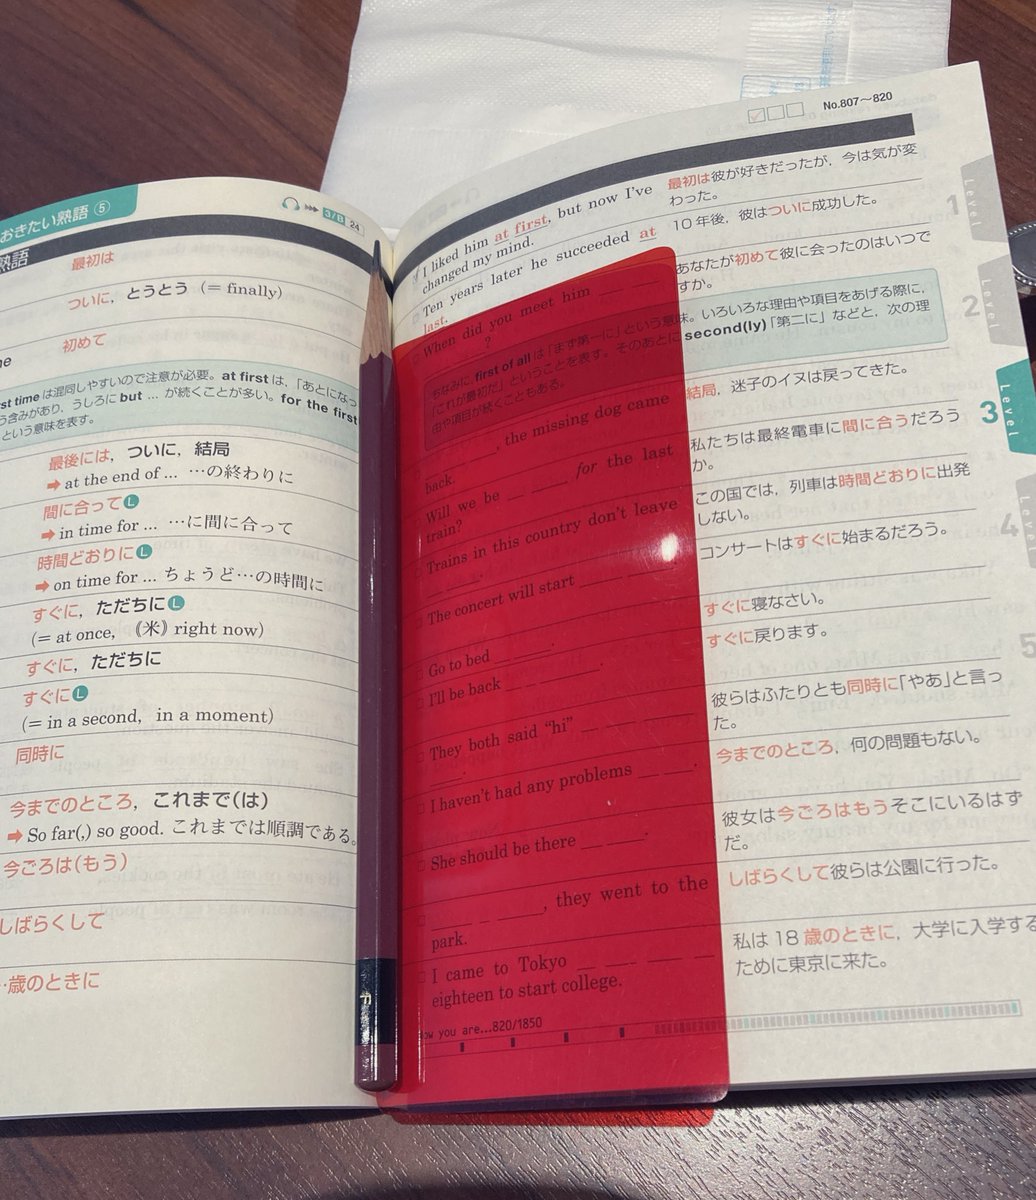 おきたい熟語⑤
3/B 24
熟語
最初は
ついに，とうとう（= finally）
初めて
rst time は混同しやすいので注意が必要。at first は、「あとになっ
う含みがあり，うしろに but … が続くことが多い。for the first
という意味を表す。
最後には，ついに，結局
➡ at the end of … …の終わりに
間に合って L
➡ in time for … …に間に合って
時間どおりに L
➡ on time for … ちょうど…の時間に
すぐに，ただちに L
(= at once, 《米》right now)
すぐに，ただちに
すぐに L
(= in a second, in a moment)
同時に
今までのところ，これまで(は)
➡ So far(,) so good. これまでは順調である。
今ごろは(もう)
しばらくして
…歳のときに
F
No.807～820
I liked him at first, but now I've
changed my mind.
最初は彼が好きだったが，今は気が変
わった。
Ten years later he succeeded at
last.
10 年後，彼はついに成功した。
When did you meet him
?
あなたが初めて彼に会ったのはいつで
すか。
ちなみに，first of all は「まず第一に」という意味。いろいろな理由や項目をあげる際に，
「これが最初だ」ということを表す。そのあとに second(ly)「第二に」などと，次の理
由や項目が続くこともある。
, the missing dog came
back.
結局，迷子のイヌは戻ってきた。
Will we be __ __ for the last
train?
私たちは最終電車に間に合うだろう
か。
Trains in this country don't leave
__ __.
この国では，列車は時間どおりに出発
しない。
The concert will start __ __.
コンサートはすぐに始まるだろう。
Go to bed __ __.
すぐに寝なさい。
I'll be back __ __ __.
すぐに戻ります。
They both said "hi" __ __ __
__.
彼らはふたりとも同時に「やあ」と言っ
た。
I haven't had any problems __ __.
今までのところ，何の問題もない。
She should be there __ __.
彼女は今ごろはもうそこにいるはず
だ。
__ __ __, they went to the
park.
しばらくして彼らは公園に行った。
I came to Tokyo __ __ __ __
eighteen to start college.
私は 18 歳のときに，大学に入学する
ために東京に来た。
ow you are...820/1850
Level 1
Level 2
Level 3
Level 4
5